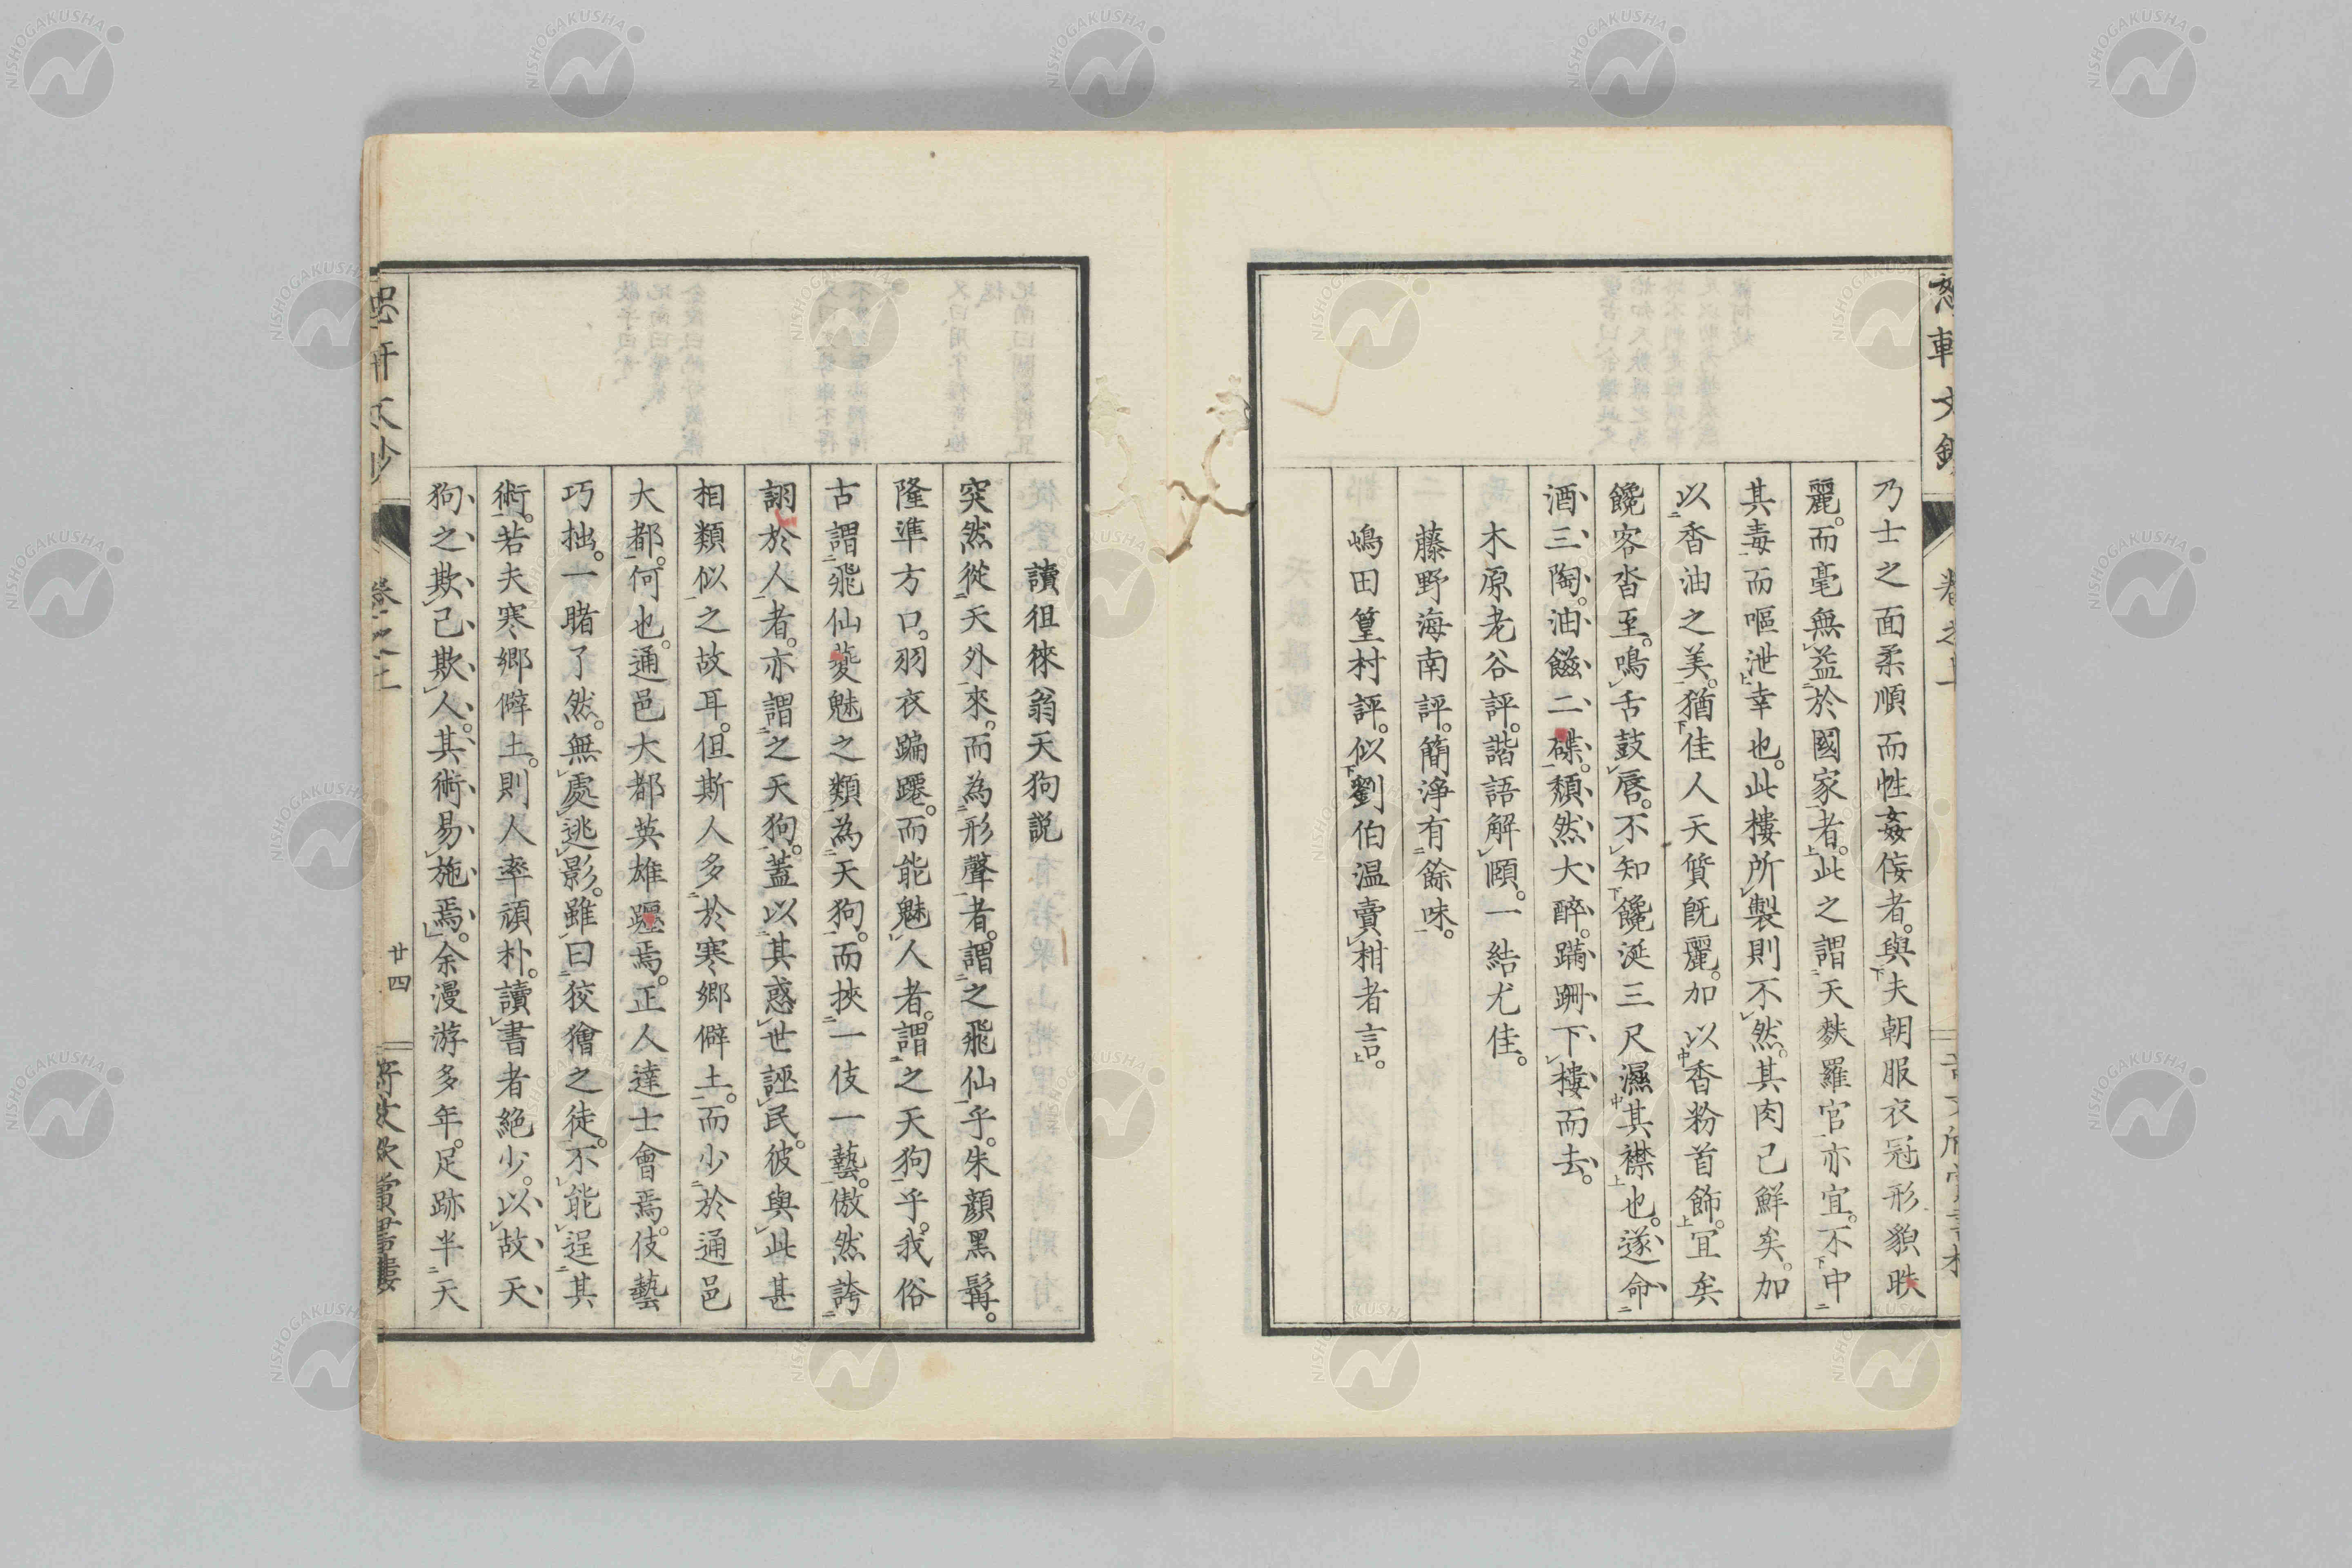 乃士之面柔順而性姦侫者。與夫朝服衣冠形貌昳
麗。而毫無益於國家者。此之謂天麩羅官亦宜。不中
其毒而嘔泄幸也。此樓所製則不然。其肉已鮮矣。加
以香油之美。猶佳人天質既麗。加以香粉首飾。宜矣
饞客沓至。鳴舌鼓唇。不知饞涎三尺濕其襟也。遂命
酒三陶。油鎡二碟。頽然大醉。蹣跚下樓而去。
木原老谷評。諧語解頤。一結尤佳。
藤野海南評。簡淨有餘味。
嶋田篁村評。似劉伯温賣柑者言。
讀徂徠翁天狗説
突然從天外來。而為形聲者。謂之飛仙乎。朱顔黑髯。
隆準方口。羽衣蹁躚。而能魅人者。謂之天狗乎。我俗
古謂飛仙夔魅之類為天狗。而挾一伎一藝。傲然誇
詡於人者。亦謂之天狗。蓋以其惑世誣民。彼與此甚
相類似之故耳。但斯人多於寒鄉僻土。而少於通邑
大都。何也。通邑大都英雄躔焉。正人達士會焉。伎藝
巧拙。一睹了然。無處逃影。雖曰狡獪之徒。不能逞其
術。若夫寒鄉僻土。則人率頑朴。讀書者絶少。以故天
狗之欺己欺人。其術易施焉。余漫游多年。足跡半天
卷之上
廿四
NISHOGAKUSHA